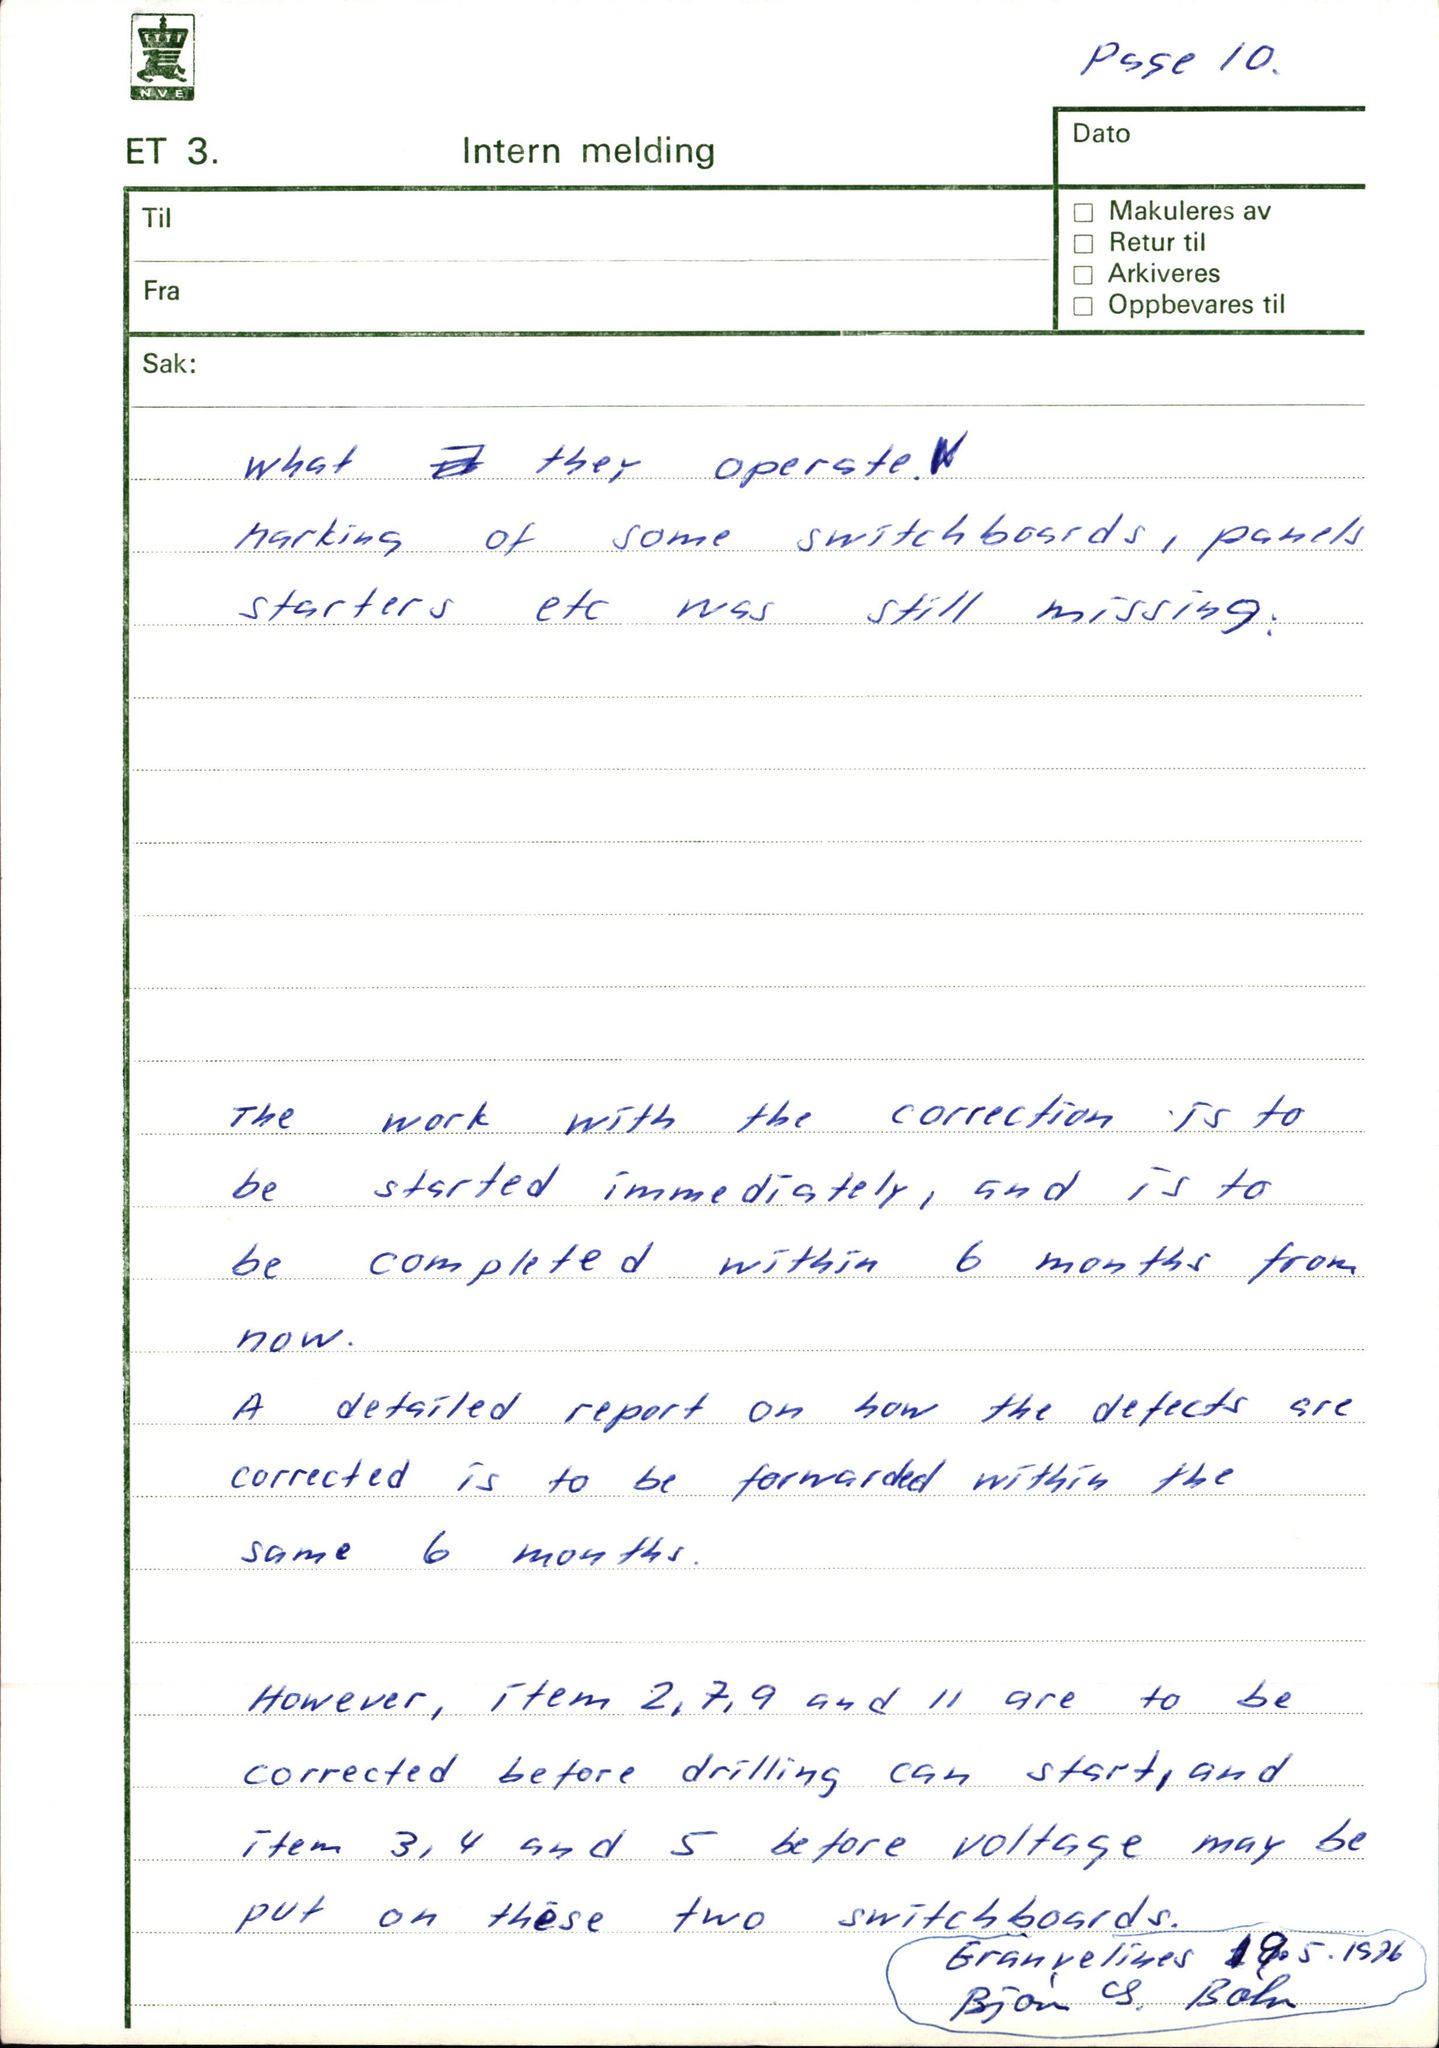 Page 10.
NVE
ET 3. Intern melding
Dato
Til
Makuleres av
Retur til
Fra
Arkiveres
Oppbevares til
Sak:
what they operate.
Marking of some switchboards, panels
starters etc was still missing.
The work with the correction is to
be started immediately, and is to
be completed within 6 months from
now.
A detailed report on how the defects are
corrected is to be forwarded within the
same 6 months.
However, item 2, 7, 9 and 11 are to be
corrected before drilling can start, and
item 3, 4 and 5 before voltage may be
put on these two switchboards.
19.5.1976